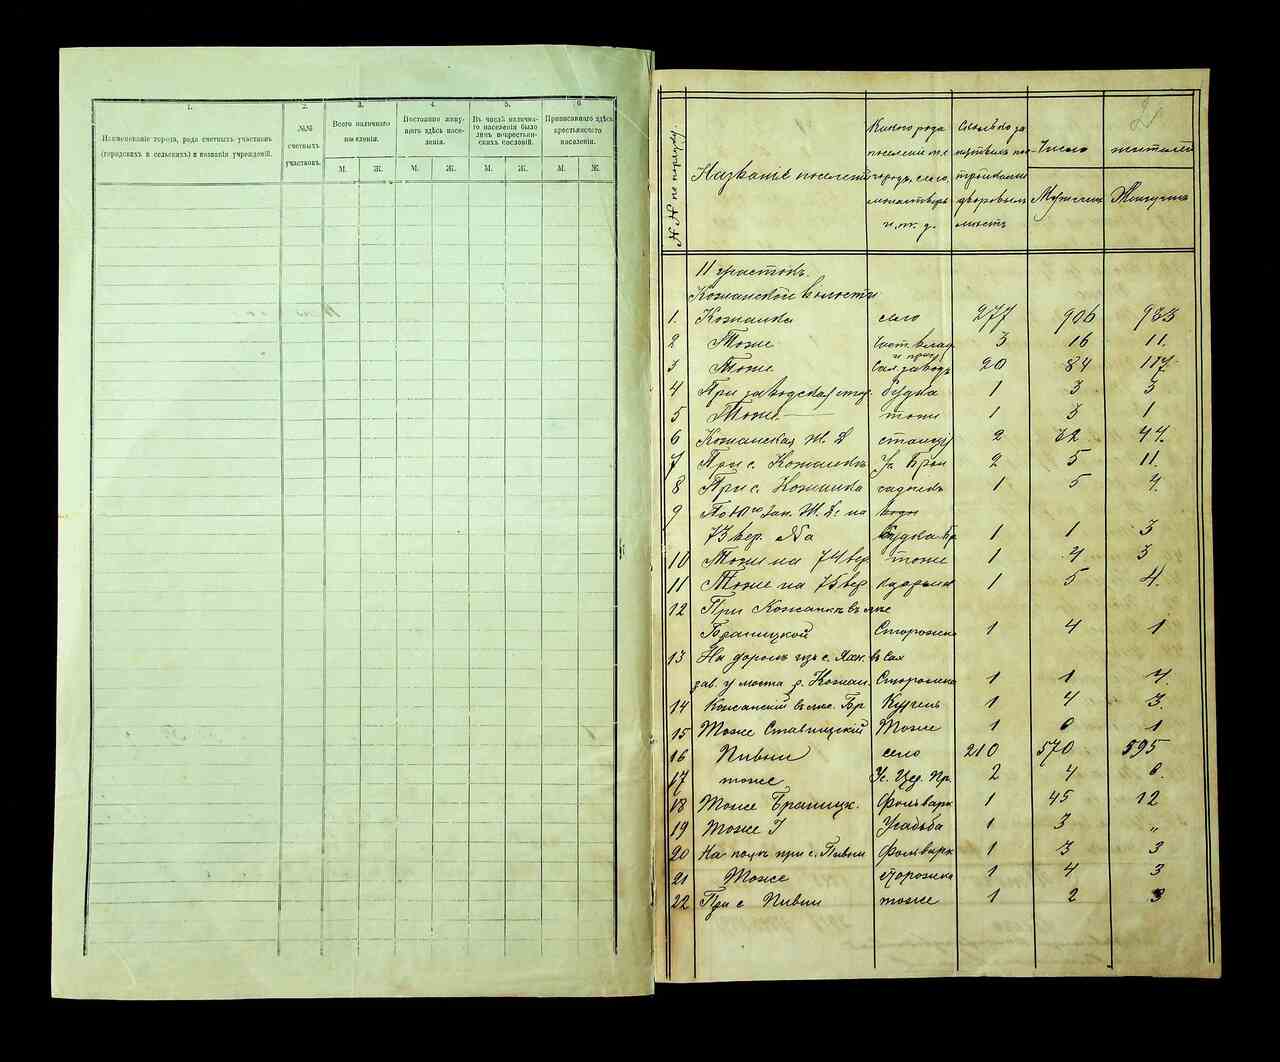 1. 2. 3. 4. 5. 6
Наименованіе города, рода счетныхъ участковъ
(городскихъ и сельскихъ) и названія учрежденій.
№№
счетныхъ
участковъ.
Всего наличнаго
населенія.
Постоянно живу-
щаго здѣсь насе-
ленія.
Въ числѣ налична-
го населенія было
лицъ некрестьян-
скихъ сословій.
Приписаннаго здѣсь
крестьянскаго
населенія.
М. Ж. М. Ж. М. Ж. М. Ж.
2
№№ по порядку.
Названіе поселенія
Какого рода
поселеніе
городъ, село,
монастырь
и. т. д.
Сколько за
дворовыхъ
мѣстъ
Число жителей
Мужчинъ Женщинъ
11 участокъ.
Кожанской волости
1. Кожанка село 277 906 933
2 Тоже 3 16 11.
3 Тоже Сах. заводъ 20 84 117
4 При заводской будка 1 3 3
5 Тоже тоже 1 3 1
6 Кожанская Ж. Д станція 2 32 44.
7 При с. Кожанкѣ 2 5 11.
8 При с. Кожанка садикъ 1 5 4.
9 По Юго Зап. Ж. Д. на
73 вер. будка 1 1 3
10 Тоже на 74 вер тоже 1 4 3
11 Тоже на 75 вер 1 5 4.
12 При Кожанкѣ въ
Браницкой Сторожка 1 4 1
13 На дорогѣ изъ с. въ Сах
зав. у моста Кожан. Сторожка 1 1 4.
14 Кожанскій Бр 1 4 3.
15 Тоже Ставищскій Тоже 1 6 1
16 Пивни село 210 570 595
17 тоже Ус. Цер. Пр. 2 4 6.
18 Тоже Браницк. Фольварк 1 45 12
19 Тоже Усадьба 1 3 „
20 На полѣ при с. Пивни Фольварк 1 3 3
21 Тоже Сторожка 1 4 3
22 При с Пивни тоже 1 2 3